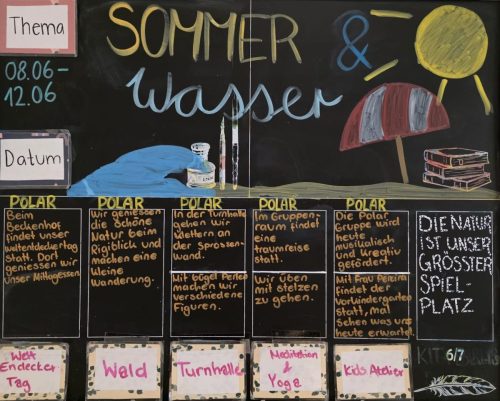 Thema
SOMMER &
Wasser
08.06-
12.06
Datum
POLAR
Beim
Beckenhof
findet unser
weltentdeckertag
statt. Dort
geniessen wir
unser Mittagessen.
POLAR
Wir geniessen
die schöne
Natur beim
Rigiblick und
machen eine
kleine
Wanderung.
POLAR
In der Turnhalle
gehen wir
klettern an
der Sprossen-
wand.
Mit bügel Perlen
machen wir
verschiedene
Figuren.
POLAR
Im Gruppen-
raum findet
eine
traumreise
statt.
Wir üben
mit stelzen
zu gehen.
POLAR
Die Polar
Gruppe wird
heute
musikalisch
und Kreativ
gefördert.
Mit Frau Pereira
findet der
Vorkindergarten
statt, mal
sehen was uns
heute erwartet.
DIE NATUR
IST UNSER
GRÖSSTER
SPIEL-
PLATZ
KIT 6/7
Welt
Endecker
Tag
Wald
Turnhalle
Meditation
&
Yoga
Kids Atelier